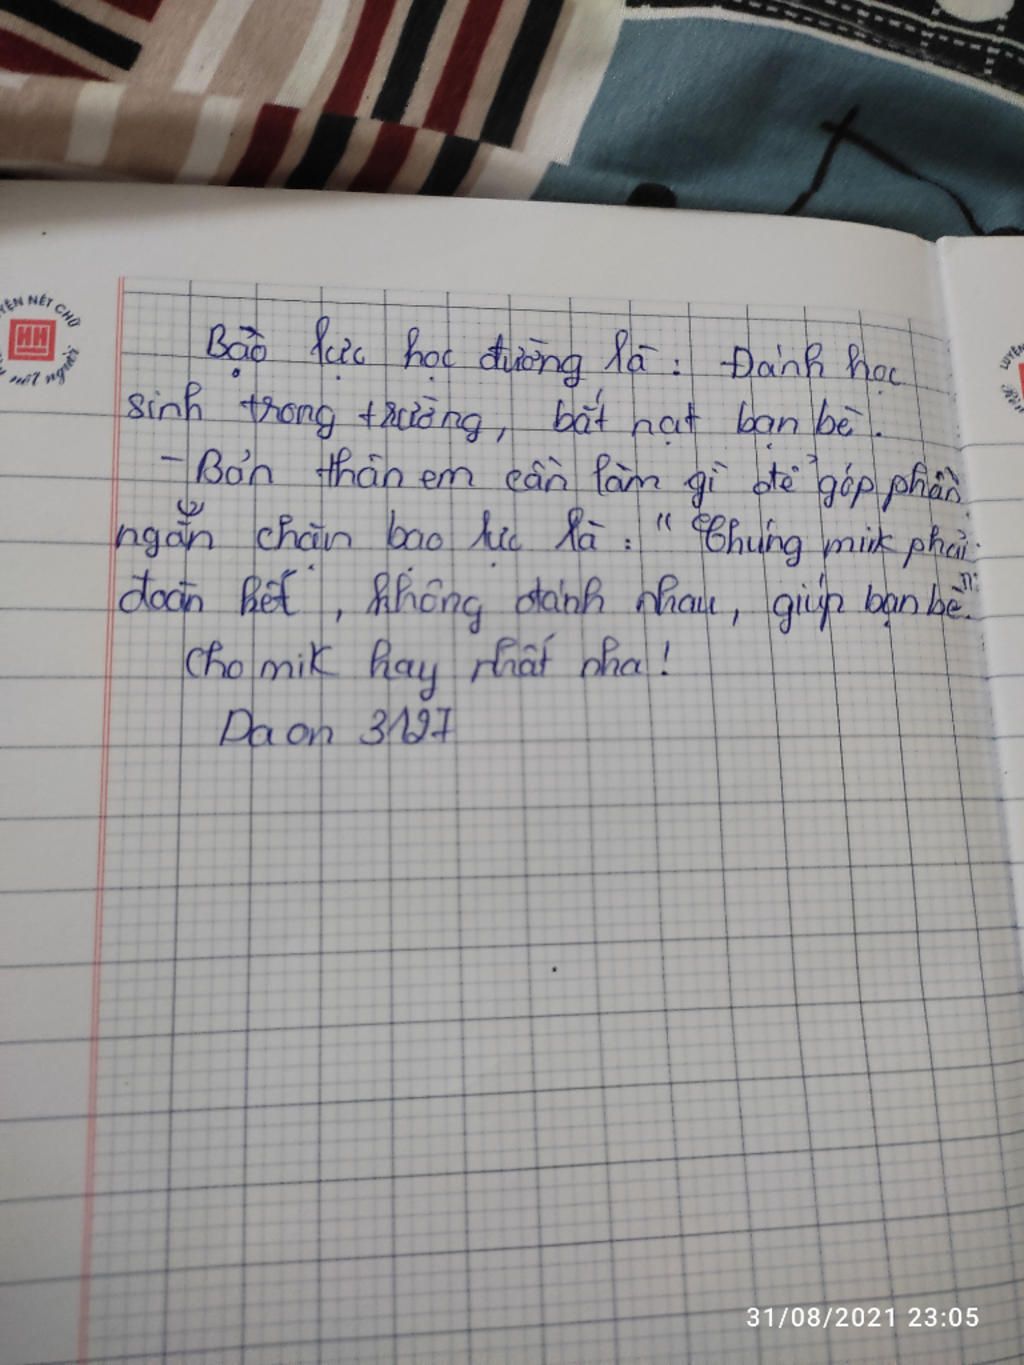 LUYỆN NÉT CHỮ
HH
nết người
Bạo lực học đường là : Đánh học
sinh trong trường, bắt nạt bạn bè.
- Bản thân em cần làm gì để góp phần
ngăn chặn bạo lực là : " Chúng mik phải
đoàn kết , không đánh nhau, giúp bạn bè."
Cho mik hay nhất nha !
Daon 3127
31/08/2021 23:05